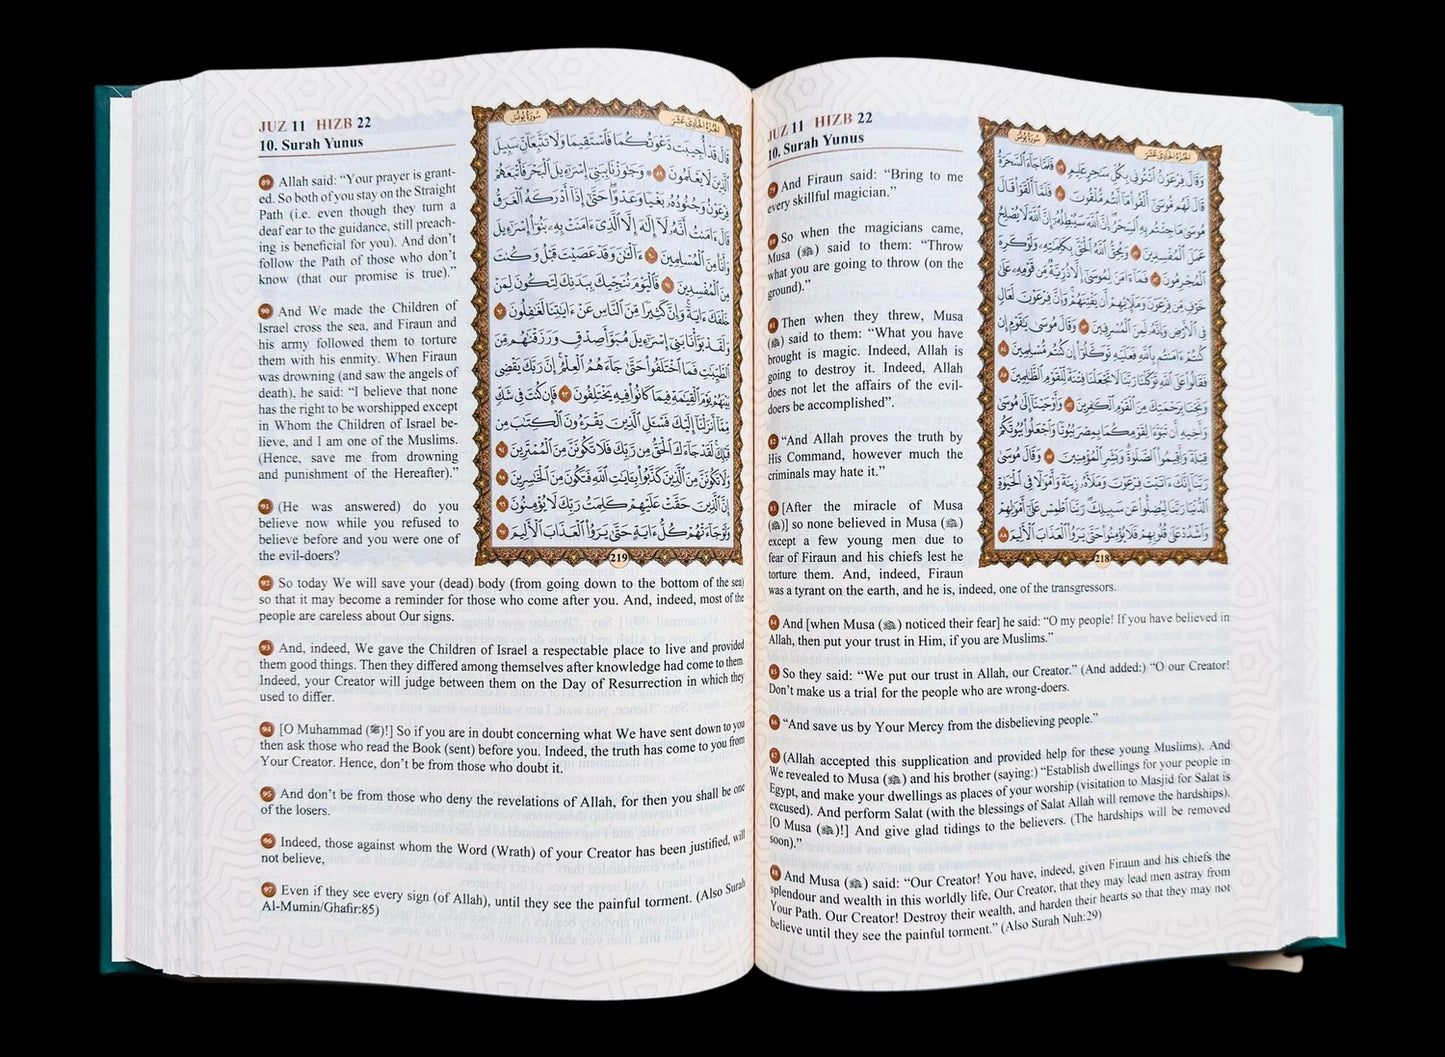 JUZ 11 HIZB 22
10. Surah Yunus
79 And Firaun said: “Bring to me
every skillful magician.”
80 So when the magicians came,
Musa (ﷺ) said to them: “Throw
what you are going to throw (on the
ground).”
81 Then when they threw, Musa
(ﷺ) said to them: “What you have
brought is magic. Indeed, Allah is
going to destroy it. Indeed, Allah
does not let the affairs of the evil-
doers be accomplished”.
82 “And Allah proves the truth by
His Command, however much the
criminals may hate it.”
83 [After the miracle of Musa
(ﷺ)] so none believed in Musa (ﷺ)
except a few young men due to
fear of Firaun and his chiefs lest he
torture them. And, indeed, Firaun
was a tyrant on the earth, and he is, indeed, one of the transgressors.
سُورَةُ يُونُسَ الجُزْءُ الحَادِي عَشَرَ
وَقَالَ فِرْعَوْنُ ٱئْتُونِى بِكُلِّ سَٰحِرٍ عَلِيمٍ ٧٩ فَلَمَّا جَآءَ ٱلسَّحَرَةُ
قَالَ لَهُم مُّوسَىٰٓ أَلْقُوا۟ مَآ أَنتُم مُّلْقُونَ ٨٠ فَلَمَّآ أَلْقَوْا۟ قَالَ
مُوسَىٰ مَا جِئْتُم بِهِ ٱلسِّحْرُ إِنَّ ٱللَّهَ سَيُبْطِلُهُۥٓ إِنَّ ٱللَّهَ لَا يُصْلِحُ
عَمَلَ ٱلْمُفْسِدِينَ ٨١ وَيُحِقُّ ٱللَّهُ ٱلْحَقَّ بِكَلِمَٰتِهِۦ وَلَوْ كَرِهَ
ٱلْمُجْرِمُونَ ٨٢ فَمَآ ءَامَنَ لِمُوسَىٰٓ إِلَّا ذُرِّيَّةٌ مِّن قَوْمِهِۦ عَلَىٰ
خَوْفٍ مِّن فِرْعَوْنَ وَمَلَإِي۟هِمْ أَن يَفْتِنَهُمْ وَإِنَّ فِرْعَوْنَ لَعَالٍ
فِى ٱلْأَرْضِ وَإِنَّهُۥ لَمِنَ ٱلْمُسْرِفِينَ ٨٣ وَقَالَ مُوسَىٰ يَٰقَوْمِ إِن
كُنتُمْ ءَامَنتُم بِٱللَّهِ فَعَلَيْهِ تَوَكَّلُوٓا۟ إِن كُنتُم مُّسْلِمِينَ ٨٤
فَقَالُوا۟ عَلَى ٱللَّهِ تَوَكَّلْنَا رَبَّنَا لَا تَجْعَلْنَا فِتْنَةً لِّلْقَوْمِ ٱلظَّٰلِمِينَ ٨٥
وَنَجِّنَا بِرَحْمَتِكَ مِنَ ٱلْقَوْمِ ٱلْكَٰفِرِينَ ٨٦ وَأَوْحَيْنَآ إِلَىٰ مُوسَىٰ
وَأَخِيهِ أَن تَبَوَّءَا لِقَوْمِكُمَا بِمِصْرَ بُيُوتًا وَٱجْعَلُوا۟ بُيُوتَكُمْ
قِبْلَةً وَأَقِيمُوا۟ ٱلصَّلَوٰةَ وَبَشِّرِ ٱلْمُؤْمِنِينَ ٨٧ وَقَالَ مُوسَىٰ
رَبَّنَآ إِنَّكَ ءَاتَيْتَ فِرْعَوْنَ وَمَلَأَهُۥ زِينَةً وَأَمْوَٰلًا فِى ٱلْحَيَوٰةِ
ٱلدُّنْيَا رَبَّنَا لِيُضِلُّوا۟ عَن سَبِيلِكَ رَبَّنَا ٱطْمِسْ عَلَىٰٓ أَمْوَٰلِهِمْ
وَٱشْدُدْ عَلَىٰ قُلُوبِهِمْ فَلَا يُؤْمِنُوا۟ حَتَّىٰ يَرَوُا۟ ٱلْعَذَابَ ٱلْأَلِيمَ ٨٨
218
84 And [when Musa (ﷺ) noticed their fear] he said: “O my people! If you have believed in
Allah, then put your trust in Him, if you are Muslims.”
85 So they said: “We put our trust in Allah, our Creator.” (And added:) “O our Creator!
Don’t make us a trial for the people who are wrong-doers.
86 “And save us by Your Mercy from the disbelieving people.”
87 (Allah accepted this supplication and provided help for these young Muslims). And
We revealed to Musa (ﷺ) and his brother (saying:) “Establish dwellings for your people in
Egypt, and make your dwellings as places of your worship (visitation to Masjid for Salat is
excused). And perform Salat (with the blessings of Salat Allah will remove the hardships).
[O Musa (ﷺ)!] And give glad tidings to the believers. (The hardships will be removed
soon).”
88 And Musa (ﷺ) said: “Our Creator! You have, indeed, given Firaun and his chiefs the
splendour and wealth in this worldly life, Our Creator, that they may lead men astray from
Your Path. Our Creator! Destroy their wealth, and harden their hearts so that they may not
believe until they see the painful torment.” (Also Surah Nuh:29)
JUZ 11 HIZB 22
10. Surah Yunus
89 Allah said: “Your prayer is grant-
ed. So both of you stay on the Straight
Path (i.e. even though they turn a
deaf ear to the guidance, still preach-
ing is beneficial for you). And don’t
follow the Path of those who don’t
know (that our promise is true).”
90 And We made the Children of
Israel cross the sea, and Firaun and
his army followed them to torture
them with his enmity. When Firaun
was drowning (and saw the angels of
death), he said: “I believe that none
has the right to be worshipped except
in Whom the Children of Israel be-
lieve, and I am one of the Muslims.
(Hence, save me from drowning
and punishment of the Hereafter).”
91 (He was answered) do you
believe now while you refused to
believe before and you were one of
the evil-doers?
سُورَةُ يُونُسَ الجُزْءُ الحَادِي عَشَرَ
قَالَ قَدْ أُجِيبَت دَّعْوَتُكُمَا فَٱسْتَقِيمَا وَلَا تَتَّبِعَآنِّ سَبِيلَ
ٱلَّذِينَ لَا يَعْلَمُونَ ٨٩ ۞ وَجَٰوَزْنَا بِبَنِىٓ إِسْرَٰٓءِيلَ ٱلْبَحْرَ فَأَتْبَعَهُمْ
فِرْعَوْنُ وَجُنُودُهُۥ بَغْيًا وَعَدْوًا حَتَّىٰٓ إِذَآ أَدْرَكَهُ ٱلْغَرَقُ
قَالَ ءَامَنتُ أَنَّهُۥ لَآ إِلَٰهَ إِلَّا ٱلَّذِىٓ ءَامَنَتْ بِهِۦ بَنُوٓا۟ إِسْرَٰٓءِيلَ
وَأَنَا۠ مِنَ ٱلْمُسْلِمِينَ ٩٠ ءَآلْـَٰٔنَ وَقَدْ عَصَيْتَ قَبْلُ وَكُنتَ
مِنَ ٱلْمُفْسِدِينَ ٩١ فَٱلْيَوْمَ نُنَجِّيكَ بِبَدَنِكَ لِتَكُونَ لِمَنْ
خَلْفَكَ ءَايَةً وَإِنَّ كَثِيرًا مِّنَ ٱلنَّاسِ عَنْ ءَايَٰتِنَا لَغَٰفِلُونَ ٩٢
وَلَقَدْ بَوَّأْنَا بَنِىٓ إِسْرَٰٓءِيلَ مُبَوَّأَ صِدْقٍ وَرَزَقْنَٰهُم مِّنَ
ٱلطَّيِّبَٰتِ فَمَا ٱخْتَلَفُوا۟ حَتَّىٰ جَآءَهُمُ ٱلْعِلْمُ إِنَّ رَبَّكَ يَقْضِى
بَيْنَهُمْ يَوْمَ ٱلْقِيَٰمَةِ فِيمَا كَانُوا۟ فِيهِ يَخْتَلِفُونَ ٩٣ فَإِن كُنتَ فِى شَكٍّ
مِّمَّآ أَنزَلْنَآ إِلَيْكَ فَسْـَٔلِ ٱلَّذِينَ يَقْرَءُونَ ٱلْكِتَٰبَ مِن
قَبْلِكَ لَقَدْ جَآءَكَ ٱلْحَقُّ مِن رَّبِّكَ فَلَا تَكُونَنَّ مِنَ ٱلْمُمْتَرِينَ ٩٤
وَلَا تَكُونَنَّ مِنَ ٱلَّذِينَ كَذَّبُوا۟ بِـَٔايَٰتِ ٱللَّهِ فَتَكُونَ مِنَ ٱلْخَٰسِرِينَ ٩٥
إِنَّ ٱلَّذِينَ حَقَّتْ عَلَيْهِمْ كَلِمَتُ رَبِّكَ لَا يُؤْمِنُونَ ٩٦
وَلَوْ جَآءَتْهُمْ كُلُّ ءَايَةٍ حَتَّىٰ يَرَوُا۟ ٱلْعَذَابَ ٱلْأَلِيمَ ٩٧
219
92 So today We will save your (dead) body (from going down to the bottom of the sea)
so that it may become a reminder for those who come after you. And, indeed, most of the
people are careless about Our signs.
93 And, indeed, We gave the Children of Israel a respectable place to live and provided
them good things. Then they differed among themselves after knowledge had come to them.
Indeed, your Creator will judge between them on the Day of Resurrection in which they
used to differ.
94 [O Muhammad (ﷺ)!] So if you are in doubt concerning what We have sent down to you
then ask those who read the Book (sent) before you. Indeed, the truth has come to you from
Your Creator. Hence, don’t be from those who doubt it.
95 And don’t be from those who deny the revelations of Allah, for then you shall be one
of the losers.
96 Indeed, those against whom the Word (Wrath) of your Creator has been justified, will
not believe,
97 Even if they see every sign (of Allah), until they see the painful torment. (Also Surah
Al-Mumin/Ghafir:85)